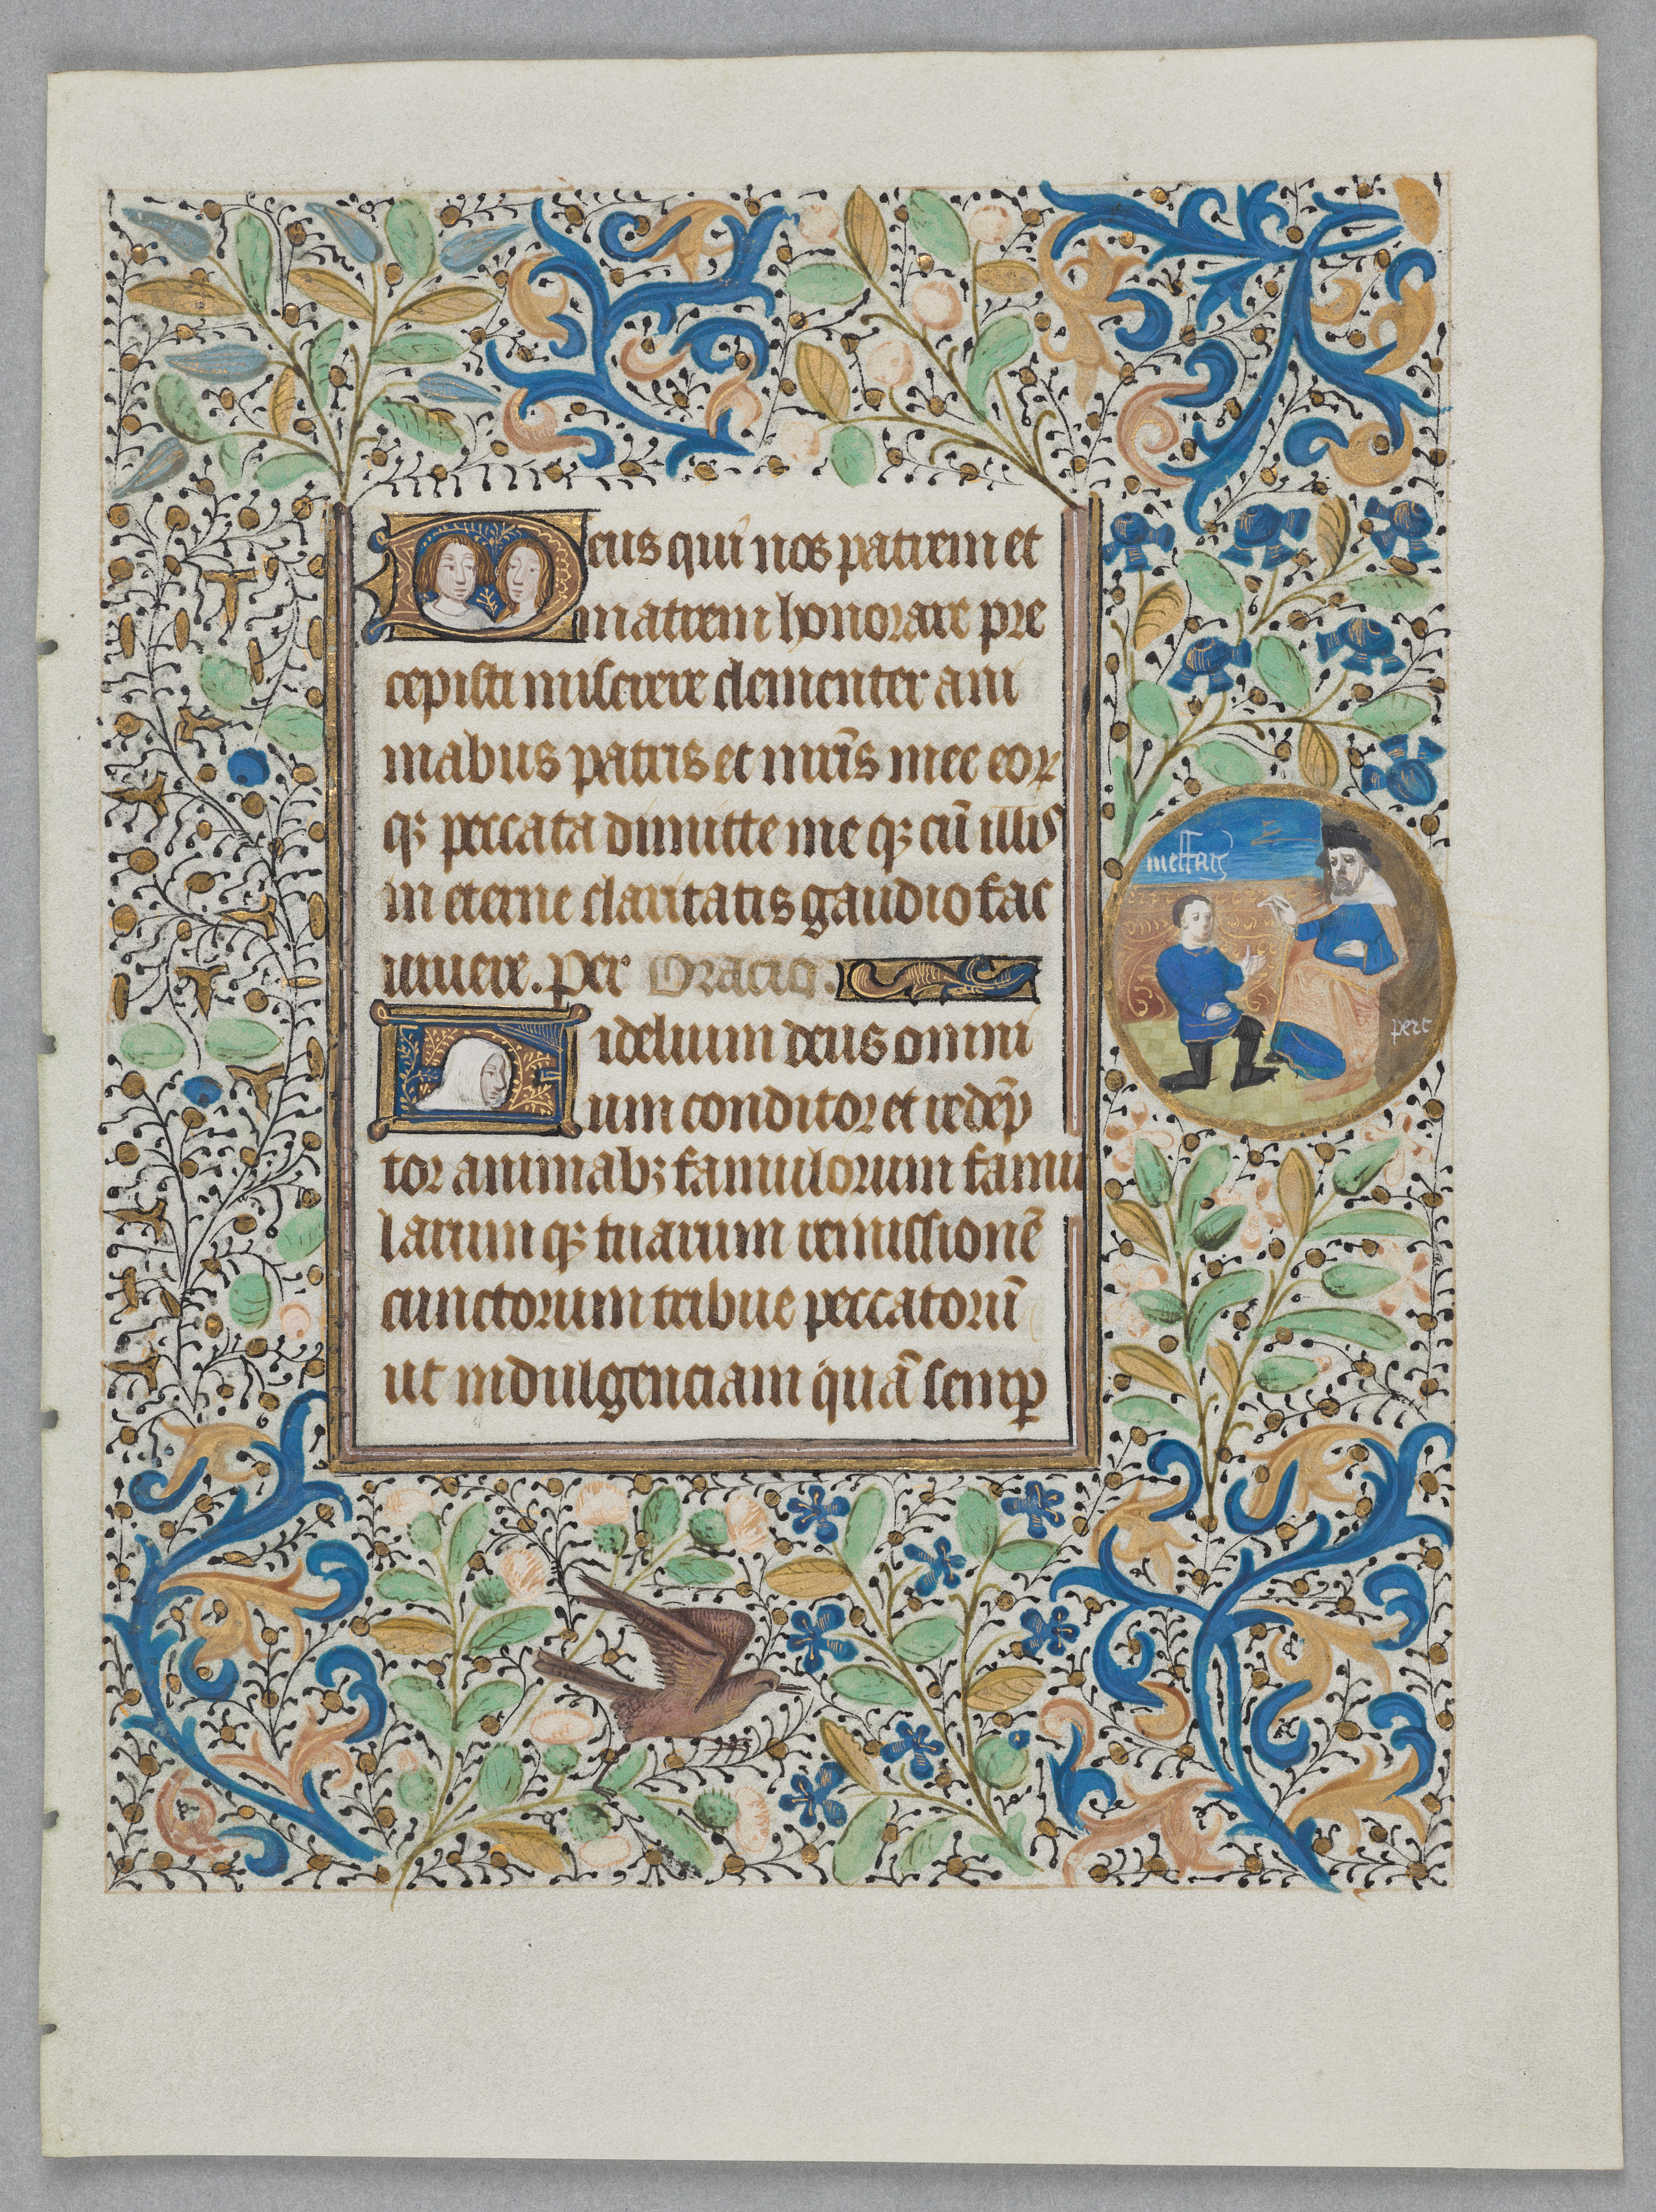 Deus qui nos patrem et
matrem honorare pre
cepisti miserere clementer ani
mabus patris et mr̄is mee eoꝝ
qꝫ peccata dimitte me qꝫ cū illis
in eterne claritatis gaudio fac
uiuere. per Oracio.
Fidelium deus omni
um conditor et redēp
tor animabꝫ famulorum famu
larum qꝫ tuarum remissionē
cunctorum tribue peccatorū
ut indulgenciam quā semꝑ
pere